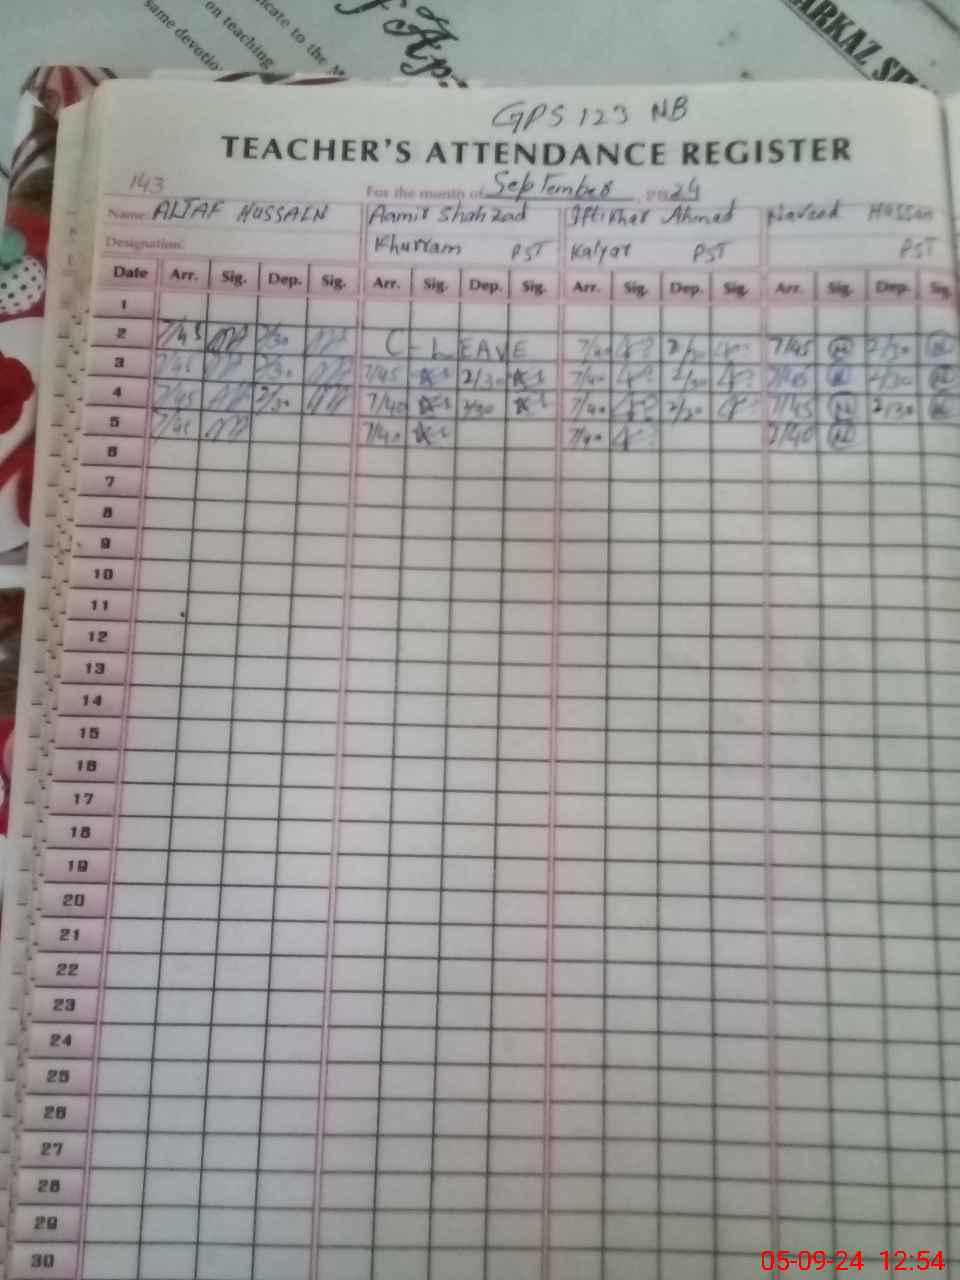 icate to the M
on teaching
same devotio
Ap
ARKAZ S
GPS 123 NB
TEACHER'S ATTENDANCE REGISTER
143
For the month of September, 2024
Name: ALTAF HUSSAIN Aamir Shahzad Iftikhar Ahmad Naveed Hassan
Designation: Khurram PST Kalyar PST PST
Date Arr. Sig. Dep. Sig. Arr. Sig. Dep. Sig. Arr. Sig. Dep. Sig. Arr. Sig. Dep. Sig.
1
2 7/45 2/30 C-LEAVE 7/40 2/30 7/45 2/30
3 7/45 2/30 7/45 2/30 7/40 2/30 7/45 2/30
4 7/45 2/30 7/40 2/30 7/40 2/30 7/45 2/30
5 7/45 7/40 7/40 7/40
6
7
8
9
10
11
12
13
14
15
16
17
18
19
20
21
22
23
24
25
26
27
28
29
30
05-09-24 12:54